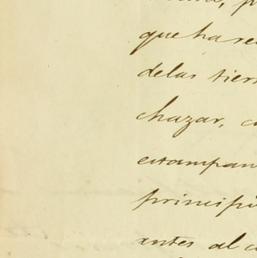 que ha re
de las tier
chazar, c
estampan
principi
antes al c